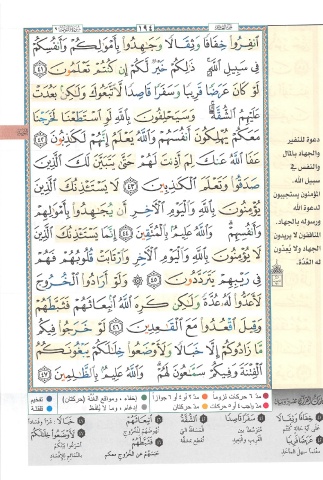 ١٩٤
ٱنفِرُوا۟ خِفَافًا وَثِقَالًا وَجَٰهِدُوا۟ بِأَمْوَٰلِكُمْ وَأَنفُسِكُمْ
فِى سَبِيلِ ٱللَّهِ ذَٰلِكُمْ خَيْرٌ لَّكُمْ إِن كُنتُمْ تَعْلَمُونَ ٤١
لَوْ كَانَ عَرَضًا قَرِيبًا وَسَفَرًا قَاصِدًا لَّٱتَّبَعُوكَ وَلَٰكِنۢ بَعُدَتْ
عَلَيْهِمُ ٱلشُّقَّةُ وَسَيَحْلِفُونَ بِٱللَّهِ لَوِ ٱسْتَطَعْنَا لَخَرَجْنَا
مَعَكُمْ يُهْلِكُونَ أَنفُسَهُمْ وَٱللَّهُ يَعْلَمُ إِنَّهُمْ لَكَٰذِبُونَ ٤٢
عَفَا ٱللَّهُ عَنكَ لِمَ أَذِنتَ لَهُمْ حَتَّىٰ يَتَبَيَّنَ لَكَ ٱلَّذِينَ
صَدَقُوا۟ وَتَعْلَمَ ٱلْكَٰذِبِينَ ٤٣ لَا يَسْتَـْٔذِنُكَ ٱلَّذِينَ
يُؤْمِنُونَ بِٱللَّهِ وَٱلْيَوْمِ ٱلْءَاخِرِ أَن يُجَٰهِدُوا۟ بِأَمْوَٰلِهِمْ
وَأَنفُسِهِمْ وَٱللَّهُ عَلِيمٌۢ بِٱلْمُتَّقِينَ ٤٤ إِنَّمَا يَسْتَـْٔذِنُكَ ٱلَّذِينَ
لَا يُؤْمِنُونَ بِٱللَّهِ وَٱلْيَوْمِ ٱلْءَاخِرِ وَٱرْتَابَتْ قُلُوبُهُمْ فَهُمْ
فِى رَيْبِهِمْ يَتَرَدَّدُونَ ٤٥ وَلَوْ أَرَادُوا۟ ٱلْخُرُوجَ
لَأَعَدُّوا۟ لَهُۥ عُدَّةً وَلَٰكِن كَرِهَ ٱللَّهُ ٱنۢبِعَاثَهُمْ فَثَبَّطَهُمْ
وَقِيلَ ٱقْعُدُوا۟ مَعَ ٱلْقَٰعِدِينَ ٤٦ لَوْ خَرَجُوا۟ فِيكُم
مَّا زَادُوكُمْ إِلَّا خَبَالًا وَلَأَوْضَعُوا۟ خِلَٰلَكُمْ يَبْغُونَكُمُ
ٱلْفِتْنَةَ وَفِيكُمْ سَمَّٰعُونَ لَهُمْ وَٱللَّهُ عَلِيمٌۢ بِٱلظَّٰلِمِينَ ٤٧
دعوة للنفير
والجهاد بالمال
والنفس في
سبيل الله.
المؤمنون يستجيبون
لدعوة الله
ورسوله بالجهاد.
المنافقون لا يريدون
الجهاد ولا يُعدّون
له العُدّة.
مدّ ٦ حركات لزوماً مدّ ٢ أو ٤ أو ٦ جوازاً إخفاء، ومواقع الغُنَّة (حركتان) تفخيم
مدّ واجب ٤ أو ٥ حركات مدّ حركتان إدغام، وما لا يُلفَظ قلقلة
خِفَافًا وَثِقَالًا
عَرَضًا قَرِيبًا
سَفَرًا قَاصِدًا
الشُّقَّةُ
انْبِعَاثَهُمْ
فَثَبَّطَهُمْ
خَبَالًا
لَأَوْضَعُوا خِلَالَكُمْ